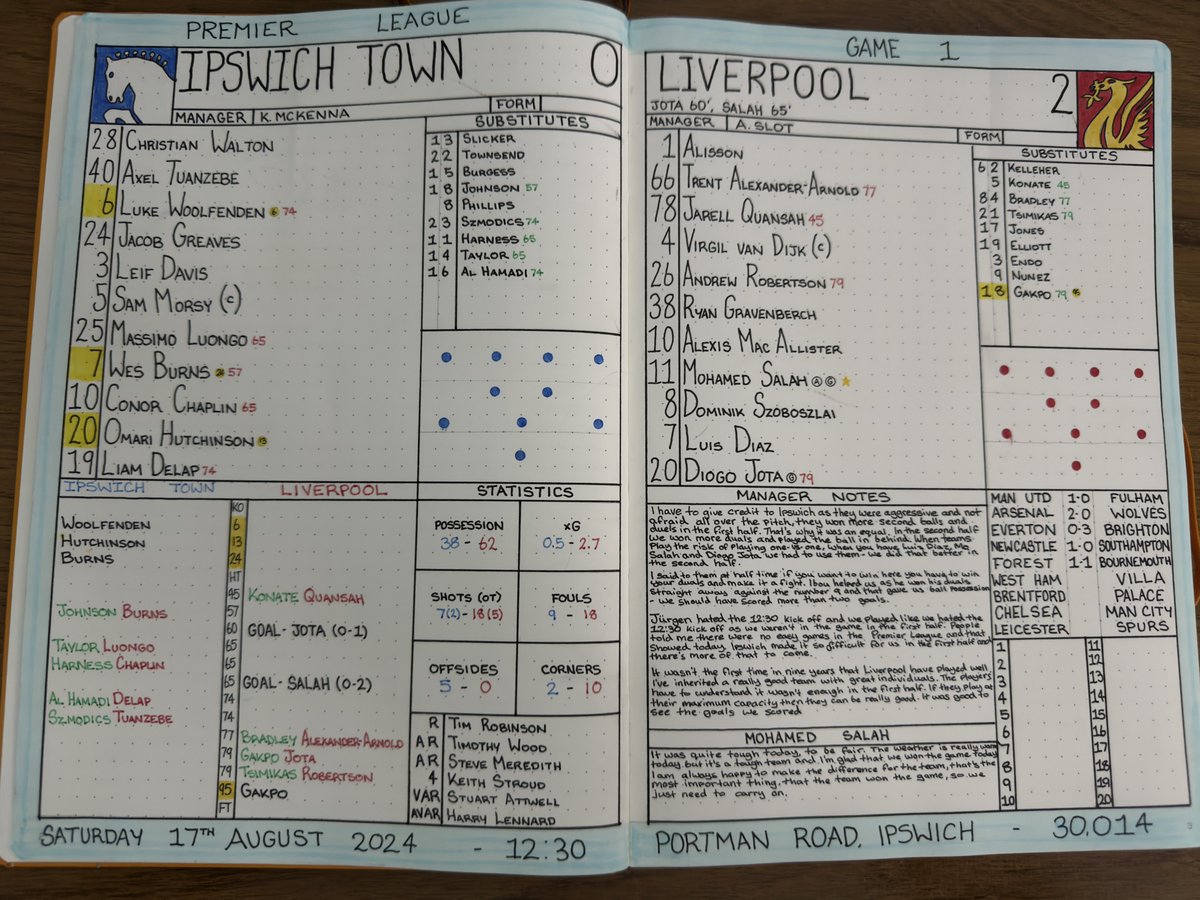 PREMIER LEAGUE
IPSWICH TOWN 0
MANAGER K. MCKENNA FORM
28 CHRISTIAN WALTON
40 AXEL TUANZEBE
6 LUKE WOOLFENDEN 6 74
24 JACOB GREAVES
3 LEIF DAVIS
5 SAM MORSY (C)
25 MASSIMO LUONGO 65
7 WES BURNS 24 57
10 CONOR CHAPLIN 65
20 OMARI HUTCHINSON 13
19 LIAM DELAP 74
SUBSTITUTES
13 SLICKER
22 TOWNSEND
15 BURGESS
18 JOHNSON 57
8 PHILLIPS
23 SZMODICS 74
11 HARNESS 65
14 TAYLOR 65
16 AL HAMADI 74
IPSWICH TOWN LIVERPOOL
KO
WOOLFENDEN 6
HUTCHINSON 13
BURNS 24
HT
45 KONATE QUANSAH
JOHNSON BURNS 57
60 GOAL- JOTA (0-1)
TAYLOR LUONGO 65
HARNESS CHAPLIN 65
65 GOAL- SALAH (0-2)
AL HAMADI DELAP 74
SZMODICS TUANZEBE 74
77 BRADLEY ALEXANDER-ARNOLD
79 GAKPO JOTA
79 TSIMIKAS ROBERTSON
95 GAKPO
FT
STATISTICS
POSSESSION xG
38 - 62 0.5 - 2.7
SHOTS (OT) FOULS
7(2) - 18(5) 9 - 18
OFFSIDES CORNERS
5 - 0 2 - 10
R TIM ROBINSON
AR TIMOTHY WOOD
AR STEVE MEREDITH
4 KEITH STROUD
VAR STUART ATTWELL
AVAR HARRY LENNARD
SATURDAY 17TH AUGUST 2024 - 12:30
GAME 1
LIVERPOOL 2
JOTA 60', SALAH 65'
MANAGER A. SLOT FORM
1 ALISSON
66 TRENT ALEXANDER-ARNOLD 77
78 JARELL QUANSAH 45
4 VIRGIL VAN DIJK (C)
26 ANDREW ROBERTSON 79
38 RYAN GRAVENBERCH
10 ALEXIS MAC ALLISTER
11 MOHAMED SALAH A G
8 DOMINIK SZOBOSZLAI
7 LUIS DIAZ
20 DIOGO JOTA G 79
SUBSTITUTES
62 KELLEHER
5 KONATE 45
84 BRADLEY 77
21 TSIMIKAS 79
17 JONES
19 ELLIOTT
3 ENDO
9 NUNEZ
18 GAKPO 79 95
MANAGER NOTES
I have to give credit to Ipswich as they were aggressive and not
afraid all over the pitch, they won more second balls and
duels in the first half. That's why it was an equal. In the second half
we won more duals and played the ball in behind. When teams
Play the risk of playing one-vs-one, when you have Luis Diaz, Mo
Salah and Diogo Jota we had to use them - we did that better in
the second half.
I said to them at half time if you want to win here you have to win
your duals and make it a fight. Ibou helped us as he won his duals
straight away against the number 9 and that gave us ball possession
- we should have scored more than two goals.
Jürgen hated the 12:30 kick off and we played like we hated the
12:30 kick off as we weren't in the game in the first half. People
told me there were no easy games in the Premier League and that
showed today. Ipswich made it so difficult for us in the first half and
there's more of that to come.
It wasn't the first time in nine years that Liverpool have played well.
I've inherited a really good team with great individuals. The players
have to understand it wasn't enough in the first half. If they play at
their maximum capacity then they can be really good. It was good to
see the goals we scored
MOHAMED SALAH
It was quite tough today, to be fair. The weather is really warm
today but it's a tough team and I'm glad that we won the game today
I am always happy to make the difference for the team, that's the
most important thing, that the team won the game, so we
just need to carry on.
MAN UTD 1-0 FULHAM
ARSENAL 2-0 WOLVES
EVERTON 0-3 BRIGHTON
NEWCASTLE 1-0 SOUTHAMPTON
FOREST 1-1 BOURNEMOUTH
WEST HAM VILLA
BRENTFORD PALACE
CHELSEA MAN CITY
LEICESTER SPURS
1 11
2 12
3 13
4 14
5 15
6 16
7 17
8 18
9 19
10 20
PORTMAN ROAD, IPSWICH - 30,014